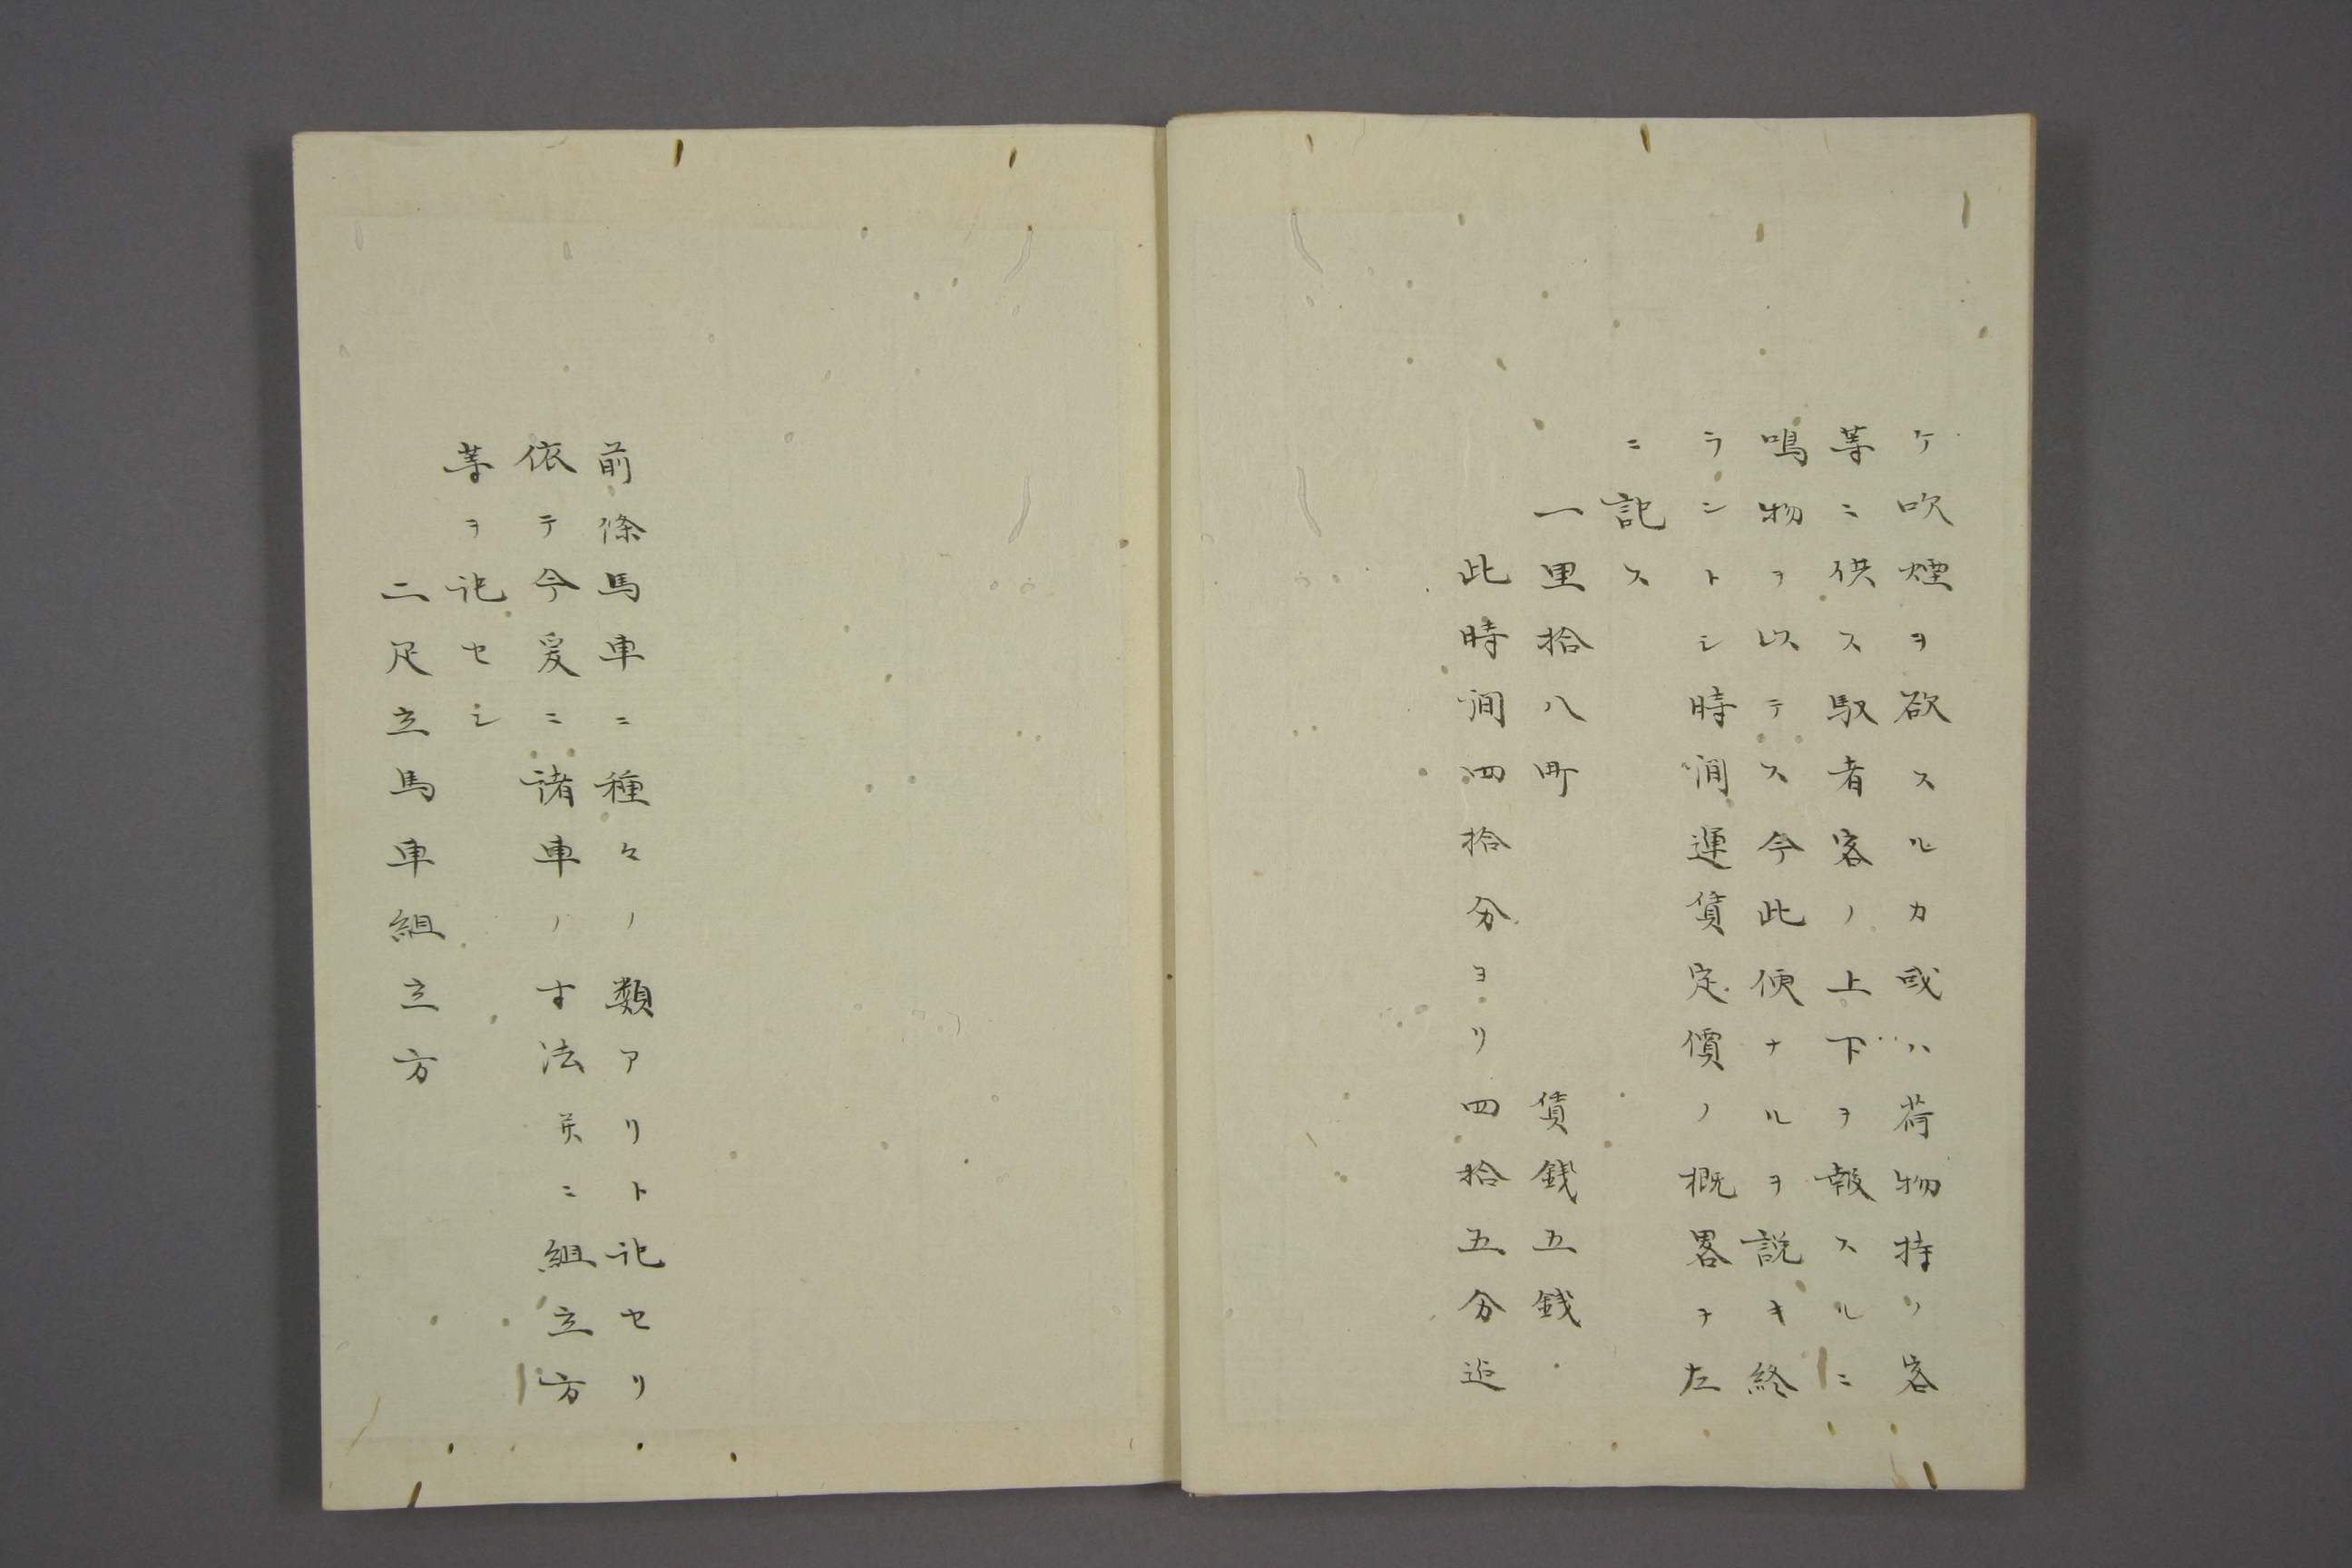 ケ吹煙ヲ欲スルカ或ハ荷物持ノ客
等ニ供ス馭者客ノ上下ヲ報スルニ
鳴物ヲ以テス今此便ナルヲ説キ終
ラントシ時間運賃定價ノ概畧ヲ左
ニ記ス
一里拾八町 賃錢五錢
此時間四拾分ヨリ四拾五分迠
前條馬車ニ種々ノ類アリト記セリ
依テ今爰ニ諸車ノ寸法並ニ組立方
等ヲ記セシ
二疋立馬車組立方